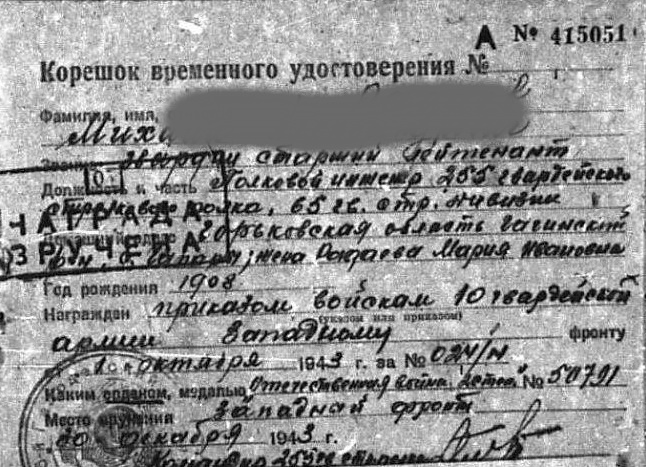 А № 415051
Корешок временного удостоверения №
Фамилия, имя,
Миха
Звание Гвардии старший Лейтенант
Должность и часть Полковой инженер 255 гвардейского
стрелкового полка, 65 гв. стр. дивизии
НАГРАДА
Горьковская область Гагинский
ВРУЧЕНА
жена Мария Ивановна
Год рождения 1908
Награжден приказом войскам 10 гвардейской
(указом или приказом)
армии Западному фронту
октября 1943 г. за № 024/н
Каким орденом, медалью Отечественная война № 50791
Место вручения Западный фронт
декабря 1943 г.
Командир 255 гв